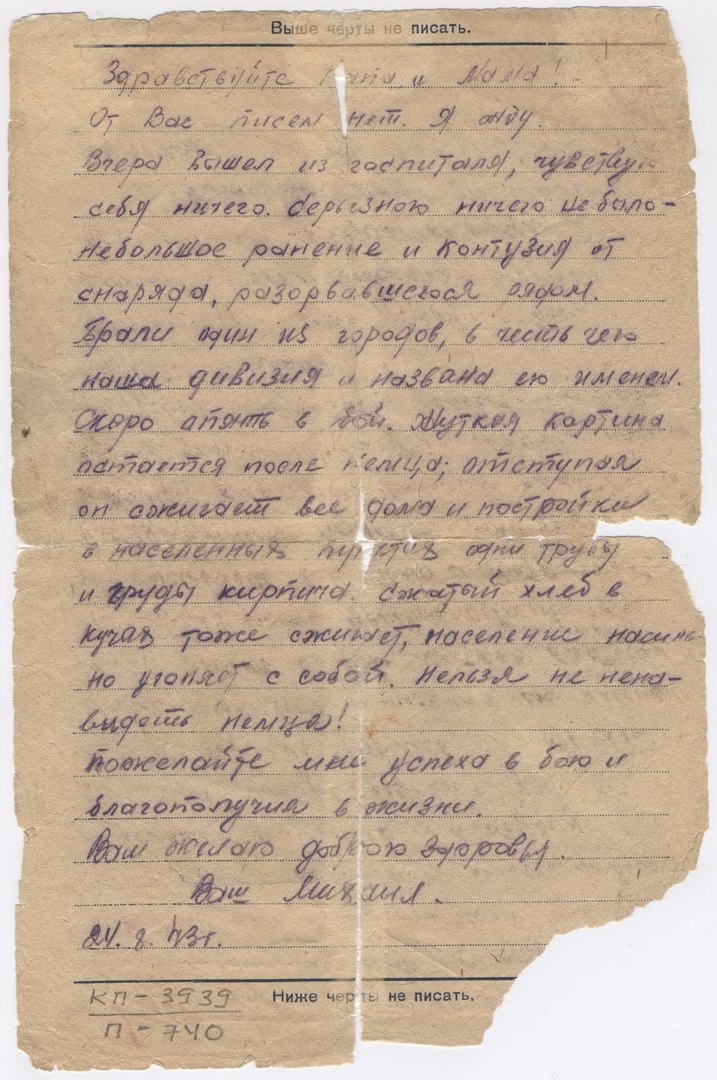 Выше черты не писать.
Здравствуйте Папа и Мама!
От Вас писем нет. Я жду.
Вчера вышел из госпиталя, чувствую
себя ничего. Серьезною ничего не было-
небольшое ранение и контузия от
снаряда, разорвавшегося рядом.
Брали один из городов, в честь чего
наша дивизия и названа ею именем.
Скоро опять в бой. Жуткая картина
остается после немца; отступая
он сжигает все дома и постройки
в населенных пунктах одни трубы
и груды кирпича. Сжатый хлеб в
кучах тоже сжигает, население насиль-
но угоняет с собой. Нельзя не нена-
видеть немца!
Пожелайте мне успеха в бою и
благополучия в жизни.
Вам желаю доброю здоровья.
Ваш Михаил.
24. 8. 43г.
Ниже черты не писать.
КП-3939
П-740